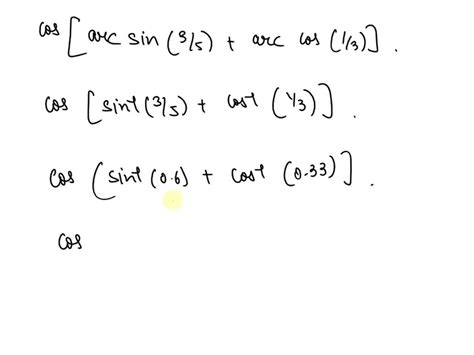 cos [arc sin (3/5) + arc cos (1/3)] .
cos [sin⁻¹(3/5) + cos⁻¹ (1/3)] .
cos (sin⁻¹ (0.6) + cos⁻¹ (0.33)] .
cos